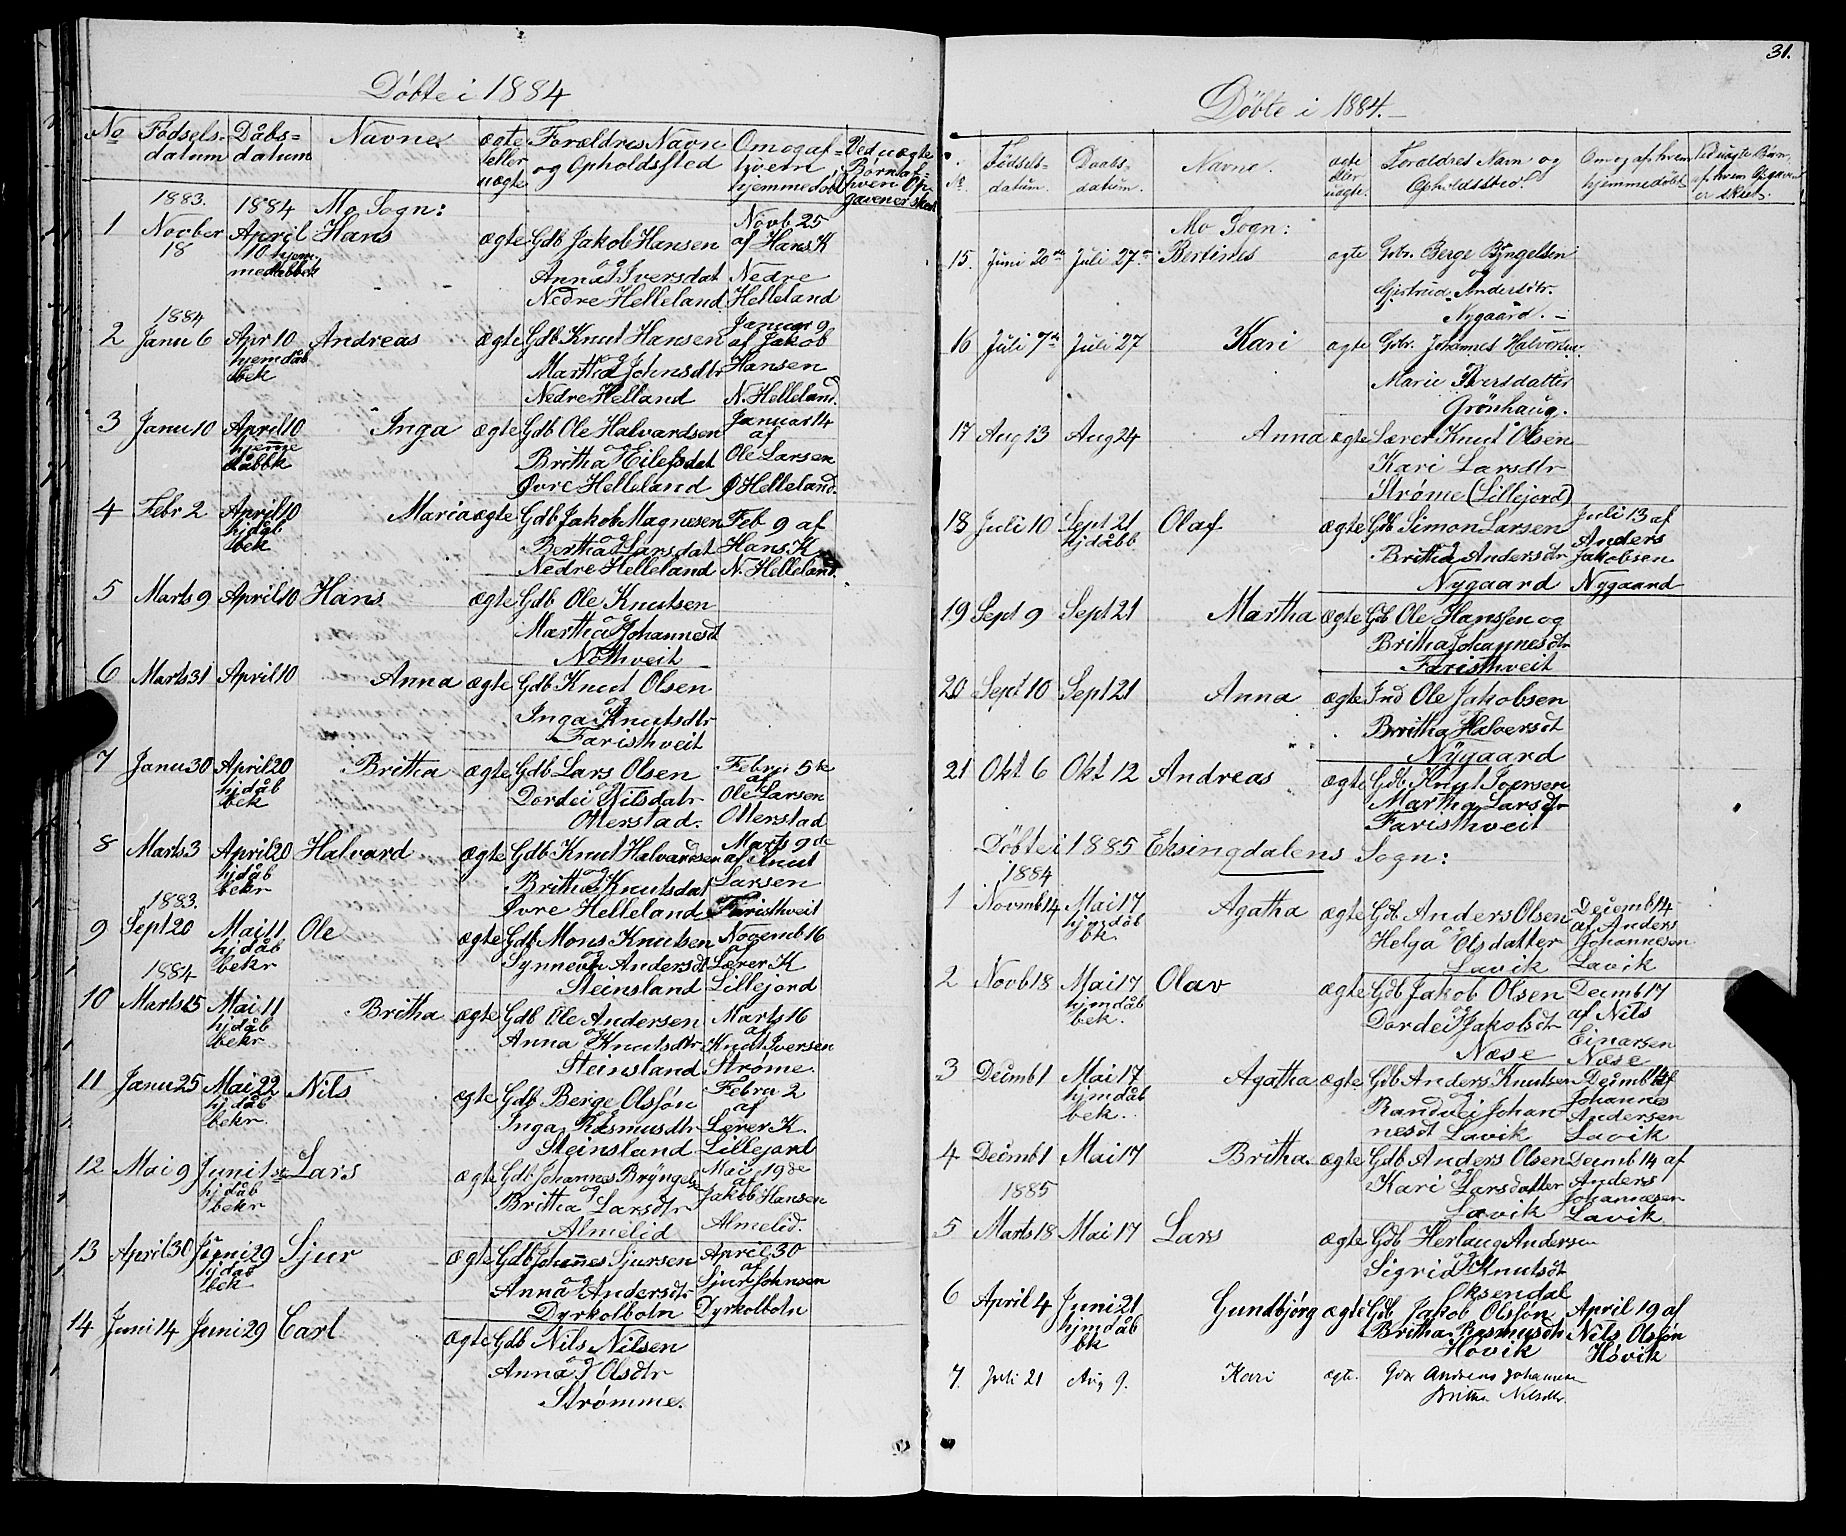 Döbte i 1884
No Födsels-datum Dåbs=datum Navne ægte eller uægte Forældres Navn og Opholdssted Om og af hvem hjemmedöbt Ved uægte Börn af hven Opgaven er skeet
1883. 1884 Mo Sogn:
1 Novber 18 April 10 hjem medåbbek Hans ægte Gdb Jakob Hansen og Anna Iversdat Nedre Helleland Novb. 25 af Hans K Nedre Helleland
1884
2 Janu 6 Apr 10 hjemdåb bek Andreas ægte Gdb Knut Hansen og Martha Johnsdtr Nedre Helland Januar 9 af Jakob Hansen N. Helleland
3 Janu 10 April 10 hjemme dåbbk Inga ægte Gdb Ole Halvardsen og Britha Eilefsdat Øvre Helleland Januar 14 af Ole Larsen Ø Helleland.
4 Febr 2 April 10 hjdåb bek Maria ægte Gdb Jakob Magnesen og Bertha Larsdat Nedre Helleland Feb 9 af Hans K N. Helleland
5 Marts 9 April 10 Hans ægte Gdb Ole Knutsen og Martha Johannesdt Nothveit
6 Marts 31 April 10 Anna ægte Gdb Knut Olsen og Inga Knutsdtr Faristhveit
7 Janu 30 April 20 hjdåb bek Britha ægte Gdb Lars Olsen og Dordei Nilsdatr Otterstad. Febru 5te af Ole Larsen Otterstad
8 Marts 3 April 20 hjdåb bekr Halvard ægte Gdb Knut Halvardsen og Britha Knutsdat Øvre Helleland Marts 9de af Knut Larsen Faristhveit
1883.
9 Sept 20 Mai 11 hjdåb bekr Ole ægte Gdb Mons Knutsen og Synneve Andersdt Steinsland Novemb 16 af Lærer K Lillejord
1884
10 Marts 15 Mai 11 hjdåb bekr Britha ægte Gdb Ole Andersen og Anna Knutsdtr Steinsland Marts 16 af Knut Iversen Strøme.
11 Janu 25 Mai 22 hjdåb bekr. Nils ægte Gdb Berge Olsføn og Inga Rasmusdtr Steinsland Febru 2 af Lærer K. Lillejord
12 Mai 9 Juni 1 hjdåb bekr Lars ægte Gdb Johannes Bryngels og Britha Larsdtr Almelid Mai 19de af Jakob Hansen Almelid.
13 April 30 Juni 29 hjdåb bek Sjur ægte Gdb Johannes Sjursen og Anna Andersdtr Dyrkolbotn April 30 af Sjur Johnsen Dyrkolbotn
14 Juni 14 Juni 29 Carl ægte Gdb Nils Nilsen og Anna Olsdtr Strømme.
31.
Döbte i 1884.
No. Födsels-datum. Daabs-datum. Navne. ægte eller uægte. Foreldres Navn og Opholdssted. Om og af hvem hjemmedöbt Ved uægte Börn, af hvem Opgaven er skeet.
Mo Sogn:
15. Juni 20de Juli 27de Bertines ægte Gbr. Berge Bryngelsen og Gjertrud Andersdtr. Nygaard.
16 Juli 7de Juli 27 Kari ægte Gbr. Johannes Halvorsen Marie Iversdatter Grönhaug.
17 Aug 13 Aug 24 Anna ægte Lærer Knut Olsen Kari Larsdtr Strøme (Lillejord)
18 Juli 10 Sept 21 hjdåbb Olaf ægte Gdb Simon Larsen og Britha Andersdtr Nygaard Juli 13 af Anders Jakobsen Nygaard
19 Sept 9 Sept 21 Martha ægte Gdb Ole Hansfen og Britha Johannesdtr Faristhveit
20 Sept 10 Sept 21 Anna ægte Ind Ole Jakobsen og Britha Halversdt Nygaard
21 Okt 6 Okt 12 Andreas ægte Gdb Knut Iversen Martha Larsdtr Faristhveit
Döbte i 1885 Eksingdalens Sogn:
1884
1 Novmb 14 Mai 17 hjmdåb bk. Agatha ægte Gdb Anders Olsen og Helga Olsdatter Lavik Decemb 14 af Anders Johannesen Lavik
2 Novb 18 Mai 17 hjmdåb bek. Olav ægte Gdb Jakob Olsen og Dordei Jakobsdt Næse Decmb 17 af Nils Einarsen Næse
3 Decmb 1 Mai 17 hjmdåb bek. Agatha ægte Gdb Anders Knutsen og Randvei Johannesdt Lavik Decmb 14 af Johannes Andersen Lavik
4 Decmb 1 Mai 17 Britha ægte Gdb Anders Olsen og Kari Larsdatter Lavik Decmb 14 af Anders Johannesen Lavik
1885
5 Marts 18 Mai 17 Lars ægte Gdb Herlaug Andersen og Sigrid Knutsdt Eksendal
6 April 4 Juni 21 hjmdåb bk Gundbjörg ægte Gdb Jakob Olsføn Britha Rasmusdt Hovik April 19 af Nils Olsføn Høvik
7. Juli 21 Aug 9. Kari ægte. Gdbr Andreas Johannesen Britha Nilsdtr